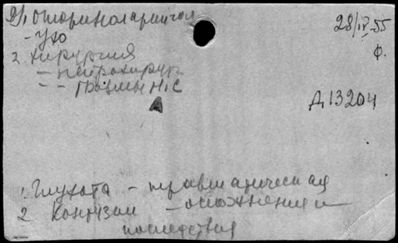 21. Оториноларингол
28/IV-55
- ухо
ф.
2. Хирургия
- нейрохирург
- - травмы Н.С
А
Д 13204
1. Глухота - травматическая
2 Контузии - осложнения и
последствия